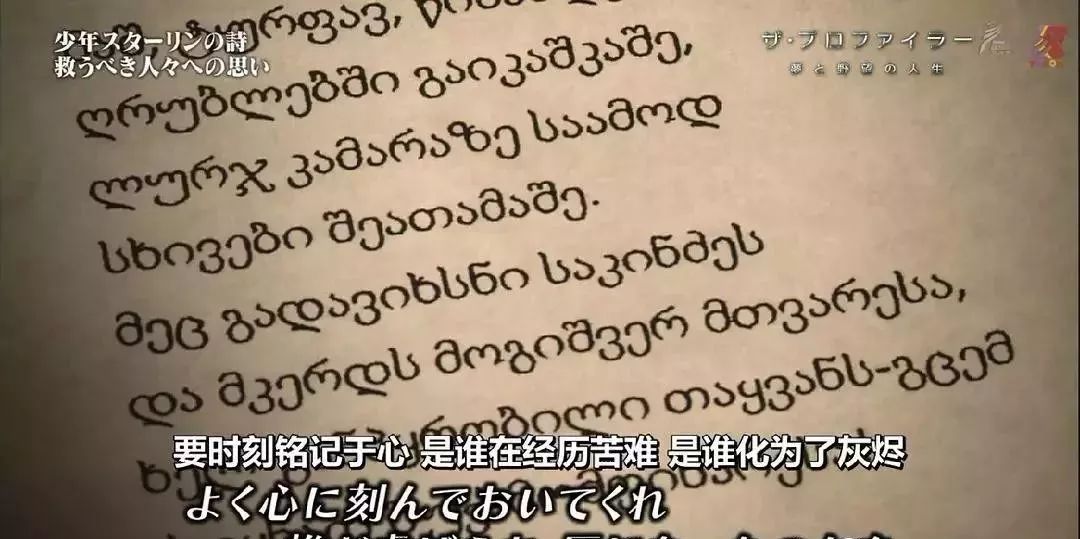 少年スターリンの詩
救うべき人々への思い
ザ・プロファイラー
夢と野望の人生
ღრუბლებში გაიკაშკაშე,
ლურჯ კამარაზე საამოდ
სხივები შეათამაშე.
მეც გადავიხსნი საკინძეს
და მკერდს მოგიშვერ მთვარესა,
თაყვანს-გცემ
要时刻铭记于心 是谁在经历苦难 是谁化为了灰烬
よく心に刻んでおいてくれ